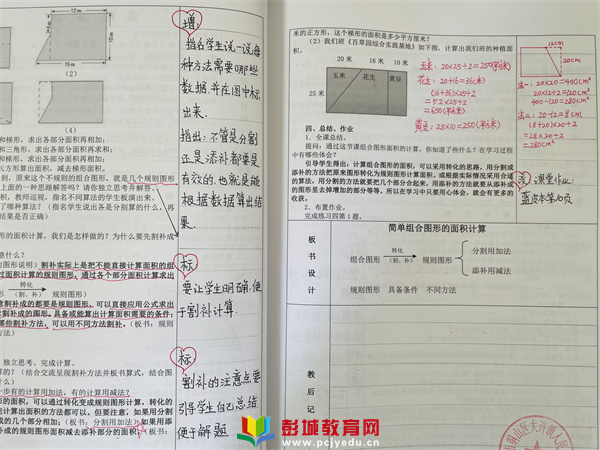 12m
10m
15m
（2）
（4）
和梯形，求出各部分面积再相加；
和三角形，求出各部分面积再求和；
梯形，求出各部分面积再相加；
长方形面积，减去梯形面积。
，原来这个不规则的组合图形，就是几个规则图形
上面的一种思路解答吗？请你独立思考并解答。
积，教师巡视，指名不同算法的学生板演出来。
了哪种算法？（指名学生说出各是分别算的什么，再
结果是否正确）
形的面积，我们是怎样做的？为什么要先割补成
意什么？
图形说明）割补实际上是把不能直接计算面积的组
面积计算的规则图形，通过各个部分面积计算求出
转化
（割、补）
规则图形）
割补成的都要是规则图形，可以直接应用公式求出
割补成的圆形，具备或能算出计算面积需要的条件；
哪些割补方法，可以用不同方法割补。（板书：规则
方法）
独立思考、完成计算。
的？（结合交流呈现割补方法并板书算式，结合图
什么）
一步有的计算用加法，有的计算用减法？
形的面积，可以通过转化变成规则图形计算，转化的
能计算出面积的方法都可以。但要注意，如果用分割
成的几个部分相加（板书：分割用加法）；如果用添
补成的规则图形面积减去添补部分的面积。（板书：
增：
指名学生说一说每
种方法需要哪些
数据，并在图中标
出来．
指出：不管是分割
还是添补都要是
有效的，也就是能
根据数据算出结
果．
标：
要让学生明确，便
于割补计算．
标：
割补的注意点要
引导学生自己总结
便于解题
米的正方形，这个梯形的面积是多少平方厘米？
（2）我们班《百草园综合实践基地》如下图，计算出我们班的种植面
积。
20米 16米 10米
玉米 花生 黄豆
25米
玉米：20×25÷2=250(平方米)
花生：20+16=36(米)
(16+36)×25÷2
=52×25÷2
=650(平方米)
黄豆：25×10=250(平方米)
12cm
20cm
法一：20×20=400cm²
20×12÷2=120cm²
400-120=280cm²
法二：20-12=8cm
(8+20)×20÷2
=28×20÷2
=280cm²
四、总结，作业
1．全课总结。
提问：通过这节课组合图形面积的计算，你知道了些什么？在学习过程
中有哪些体会？
引导学生得出：计算组合图形的面积，可以采用转化的思路，用分割或
添补的方法把原来图形转化为规则图形计算面积，或根据实际情况采用合理
的算法。用分割的方法就要把几个部分合起来，用添补的方法就要从添补成
的图形里去掉增加的部分等等。所以在学习中只要用心体会，就会有更多的
收获。
2．布置作业。
完成练习四第1题。
课堂作业：
蓝皮本第10页
简单组合图形的面积计算
板
书
设
计
组合图形
转化
（割、补）
规则图形
分割用加法
添补用减法
规则图形 具备条件 不同方法
教
后
记
彭城教育网
www.pcjyedu.cn